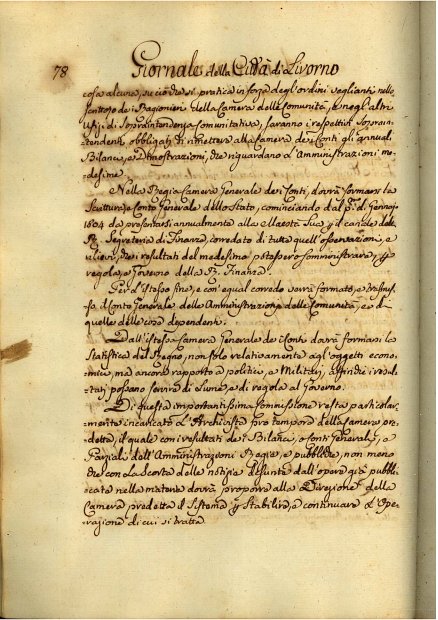 78 Giornale della Città di Livorno
cosa alcuna, su ciò che si pratica in forza degl'ordini veglianti nello
Scrittojo dei Ragionieri della Camera delle Comunità, e negl'altri
Ufizj di Sopraintendenza comunitativa, saranno i respettivi Soprain-
-tendenti obbligati di rimettere alla Camera dei Conti gl'annuali
Bilanci, e Dimostrazioni, che riguardano l'Amministrazioni me-
desime.
Nella Regia Camera Generale dei Conti, dovrà formarsi la
Scrittura, e Conto Generale dello Stato, cominciando dal p.º di Gennajo
1804 da presentarsi annualmente alla Maestà Sua p il canale della
R. Segreteria di Finanze, corredato di tutte quell'osservazioni, e
rilievi, che i resultati del medesimo potessero somministrare, p
regola, e Governo della R. Finanza.
Per l'istesso fine, e con egual corredo verrà formato, e trasmes-
so il Conto Generale delle Amministrazioni delle Comunità, e di
quelle da esse dependenti.
Dall'istessa Camera Generale dei Conti dovrà formarsi la
Statistica del Regno, non solo relativamente agl'oggetti econo-
mici, ma ancora rapporto a politici, e Militari, affinchè i resul-
-tati possano servire di lume, e di regola al Governo.
Di questa importantissima commissione resta particolar-
-mente incaricato l'Archivista pro tempore della Camera pre-
-detta, il quale con i resultati dei Bilanci, o Conti Generali, e
Parziali dell'Amministrazioni Regie, e pubbliche, non meno
che con la scorta delle notizie desunte dall'opere già pubbli-
-cate nella materia dovrà proporre alla Direzione della
Camera predetta il Sistema p stabilire, e continuare l'Ope-
-razione di cui si tratta